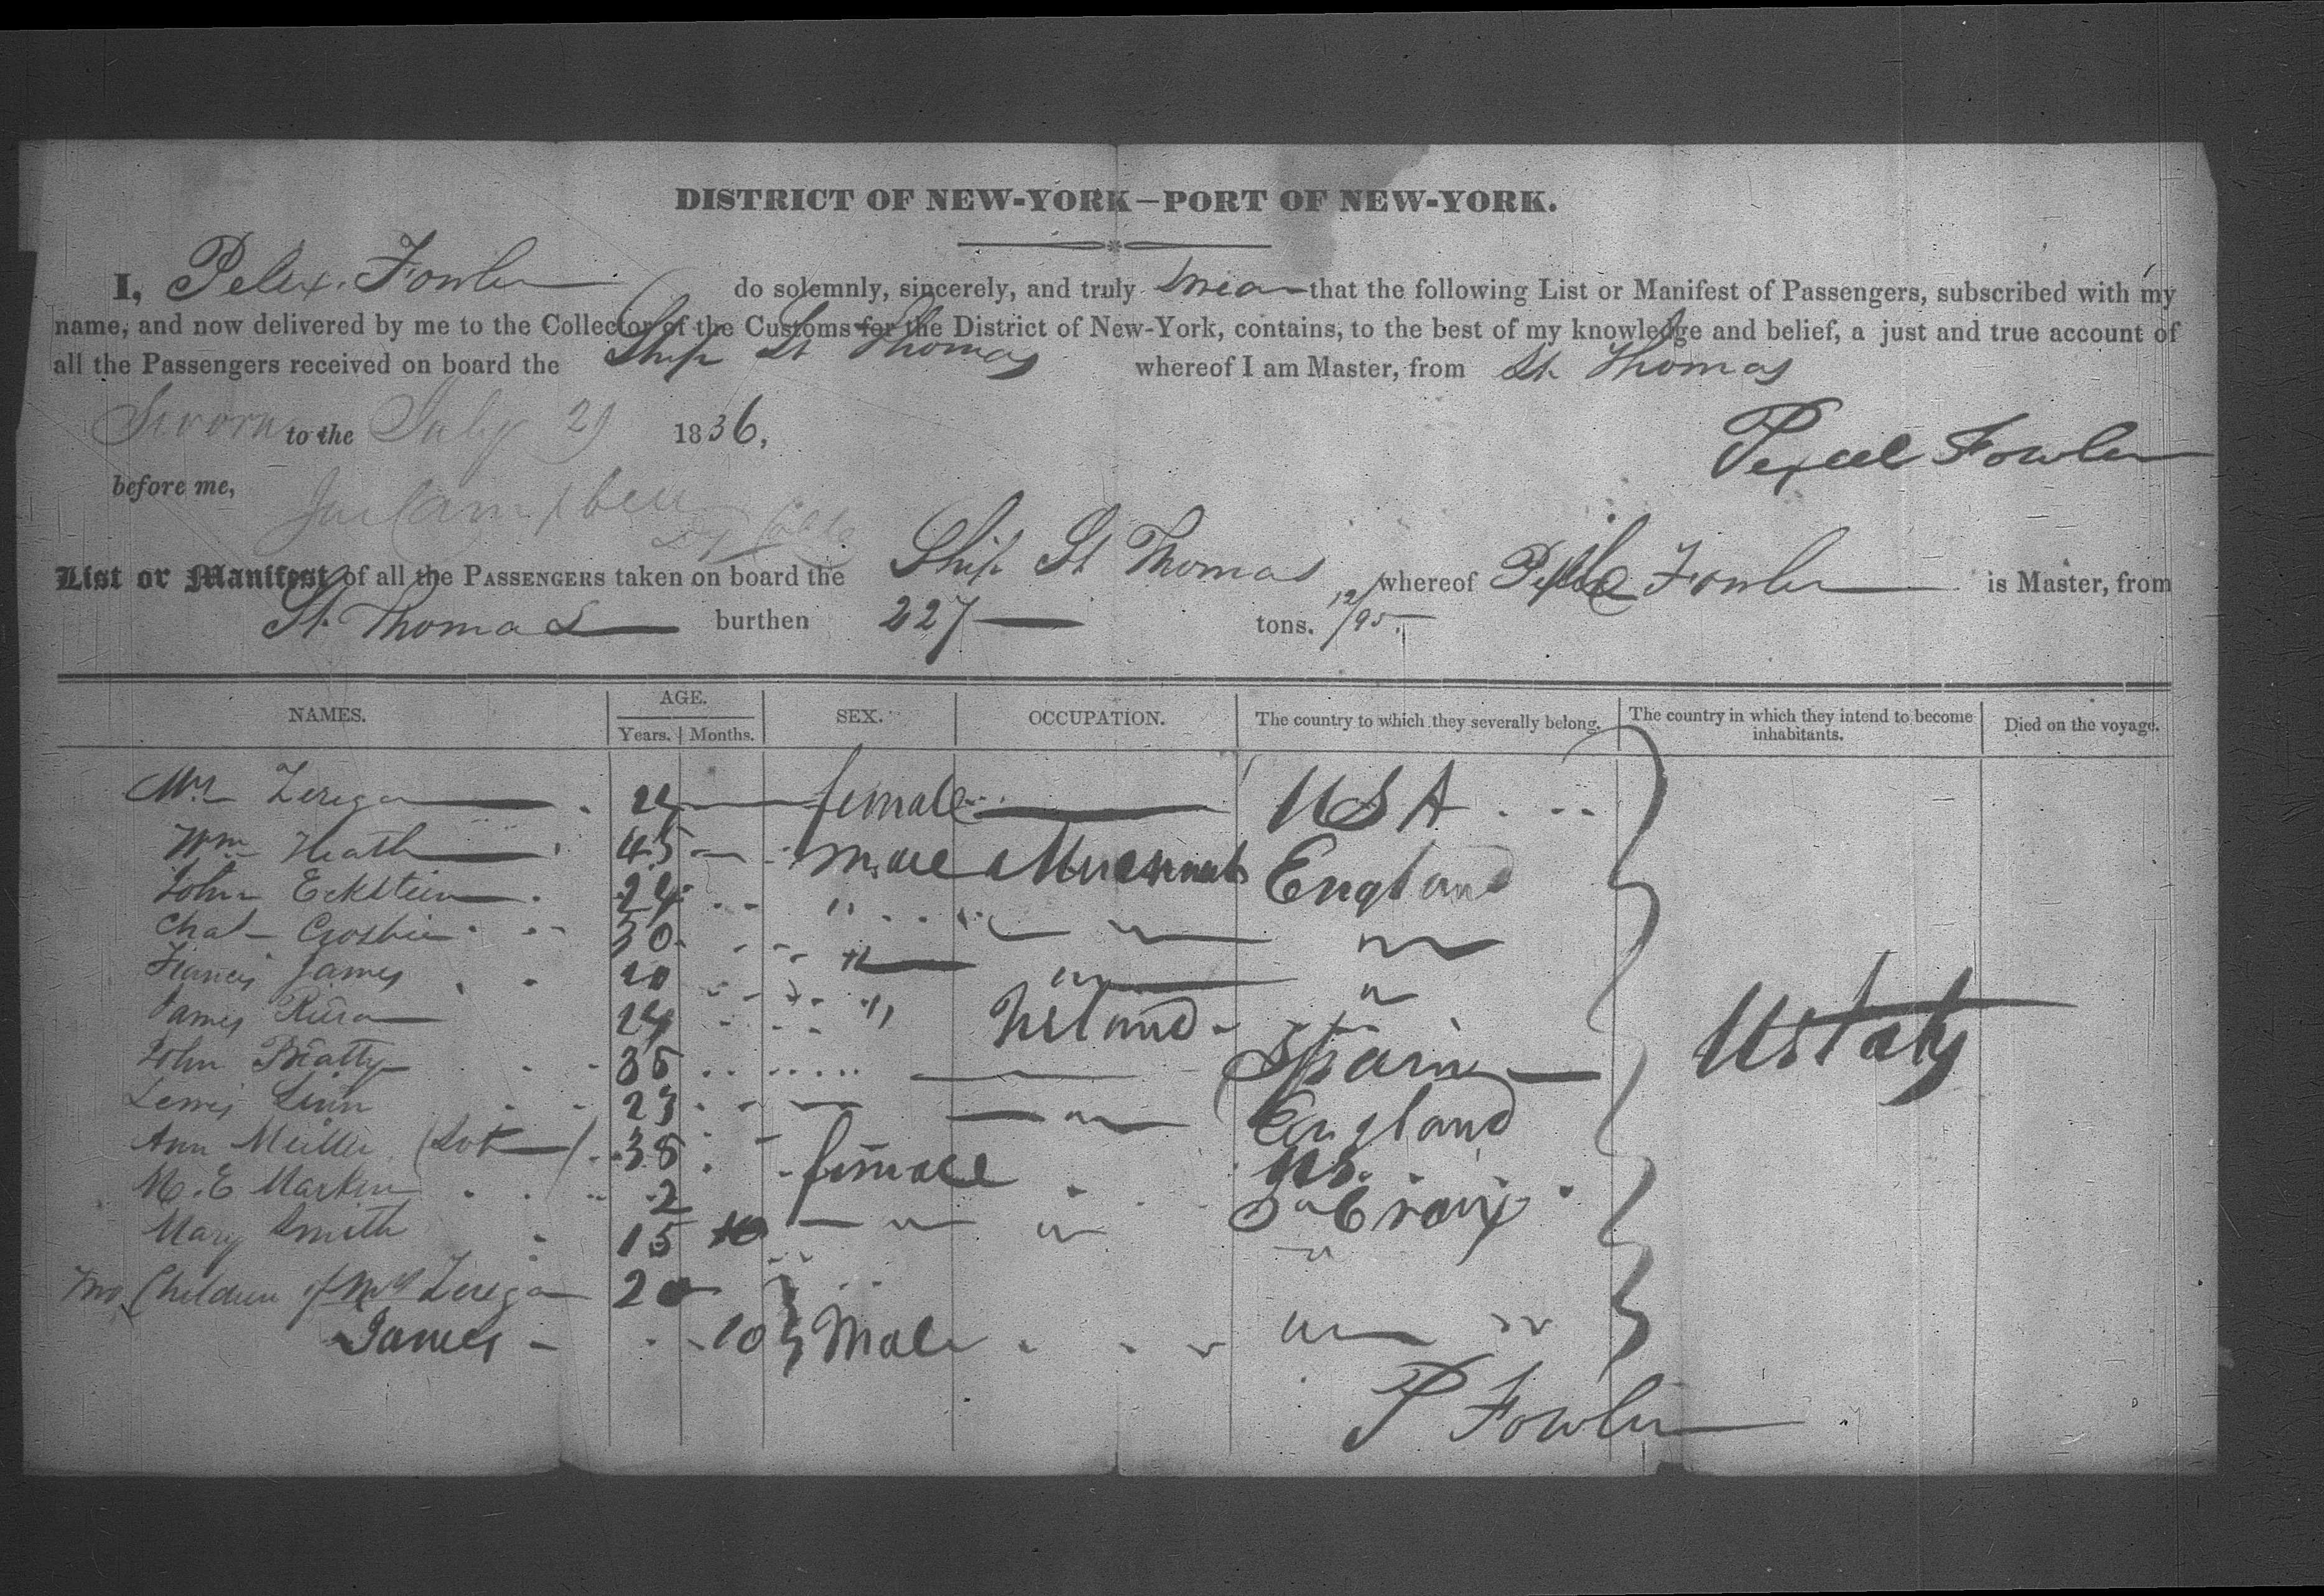 DISTRICT OF NEW-YORK—PORT OF NEW-YORK.
I, Fowler do solemnly, sincerely, and truly swear that the following List or Manifest of Passengers, subscribed with my
name, and now delivered by me to the Collector of the Customs for the District of New-York, contains, to the best of my knowledge and belief, a just and true account of
all the Passengers received on board the Ship St Thomas whereof I am Master, from St. Thomas
Sworn to the July 29 1836,
Fowler
before me,
List or Manifest of all the PASSENGERS taken on board the Ship St Thomas whereof Fowler is Master, from
St. Thomas burthen 227 tons. 12/95.
NAMES. AGE. SEX. OCCUPATION. The country to which they severally belong. The country in which they intend to become inhabitants. Died on the voyage.
Years. Months.
Mrs Zerega 24 female USA
Wm Heath 45 male Merchants England
John Eckstein 24 "
Chas Crosbie 30 " "
Francis James 20 " " "
James 24 Ireland
John Beatty 35 Spain
Lewis Linn 23 " England
Ann 38 female US.
M. E. 2 Sa Croix
Mary Smith 15 10 " " "
Two Children of Mrs Zerega 20
James 10 Male "
U States
P Fowler